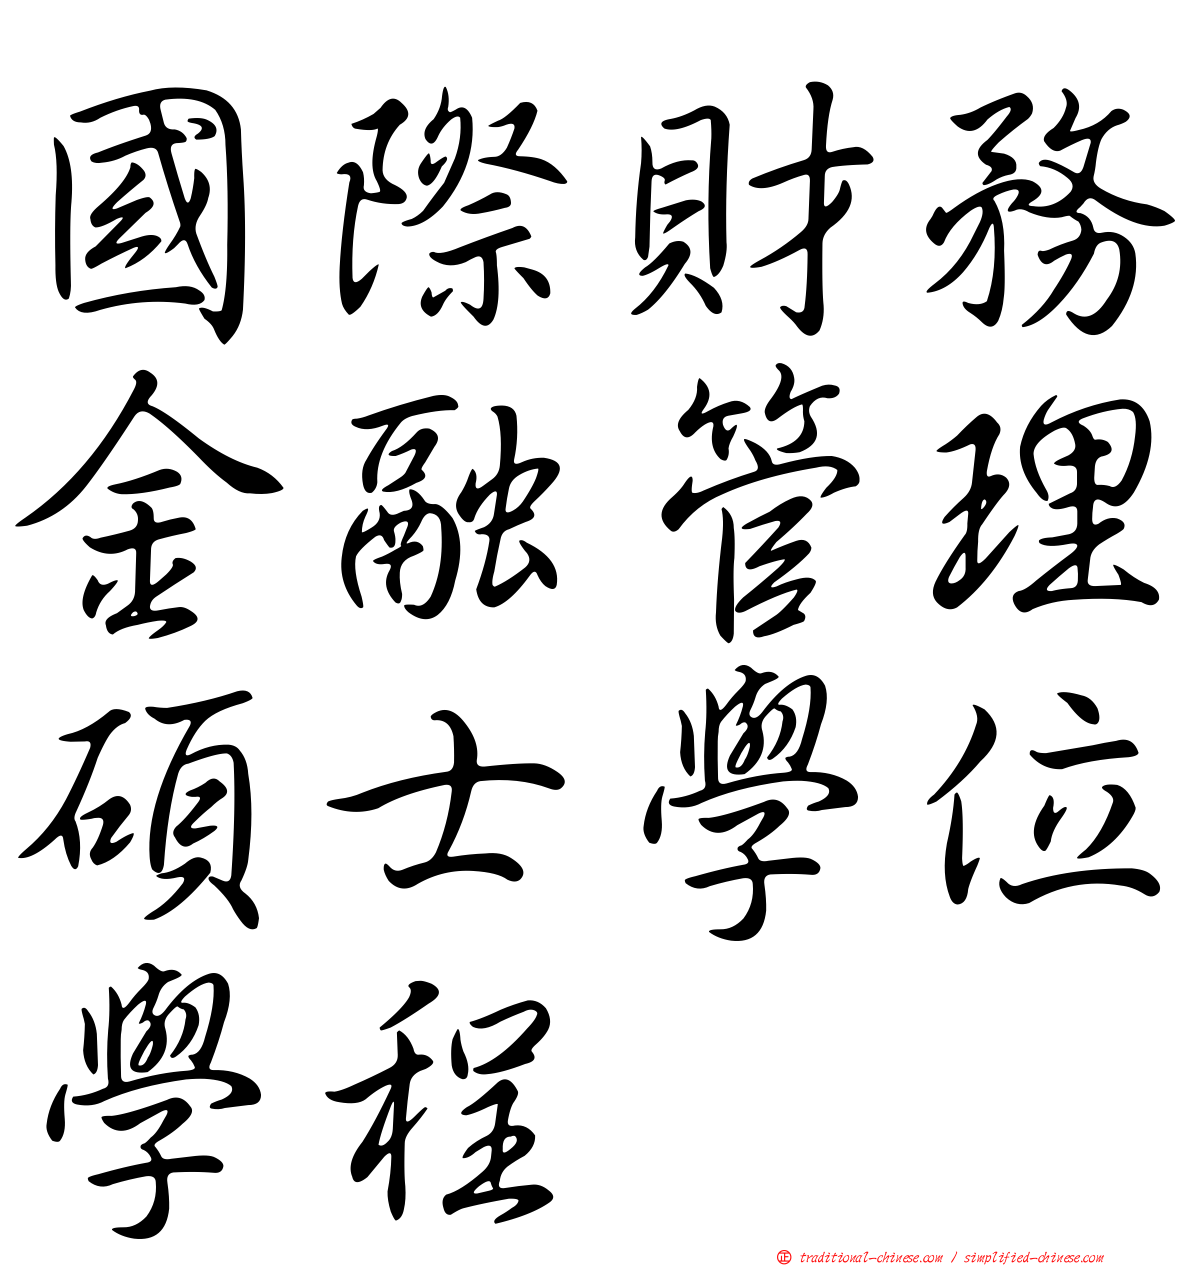 國際財務
金融管理
碩士學位
學程
㊣ traditional-chinese.com / simplified-chinese.com